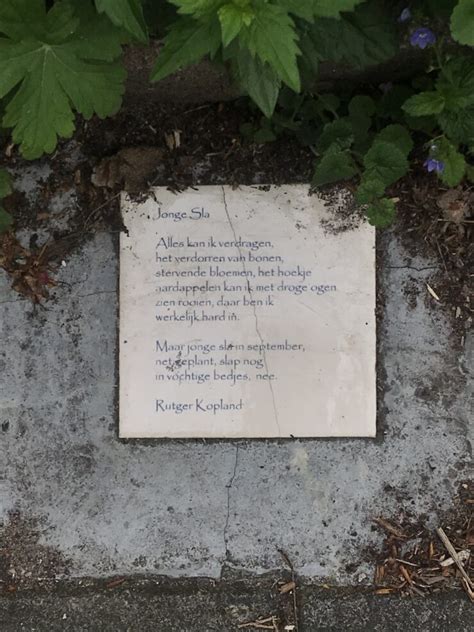 Jonge Sla
Alles kan ik verdragen,
het verdorren van bonen,
stervende bloemen, het hoekje
aardappelen kan ik met droge ogen
zien rooien, daar ben ik
werkelijk hard in.
Maar jonge sla in september,
net geplant, slap nog
in vochtige bedjes, nee.
Rutger Kopland